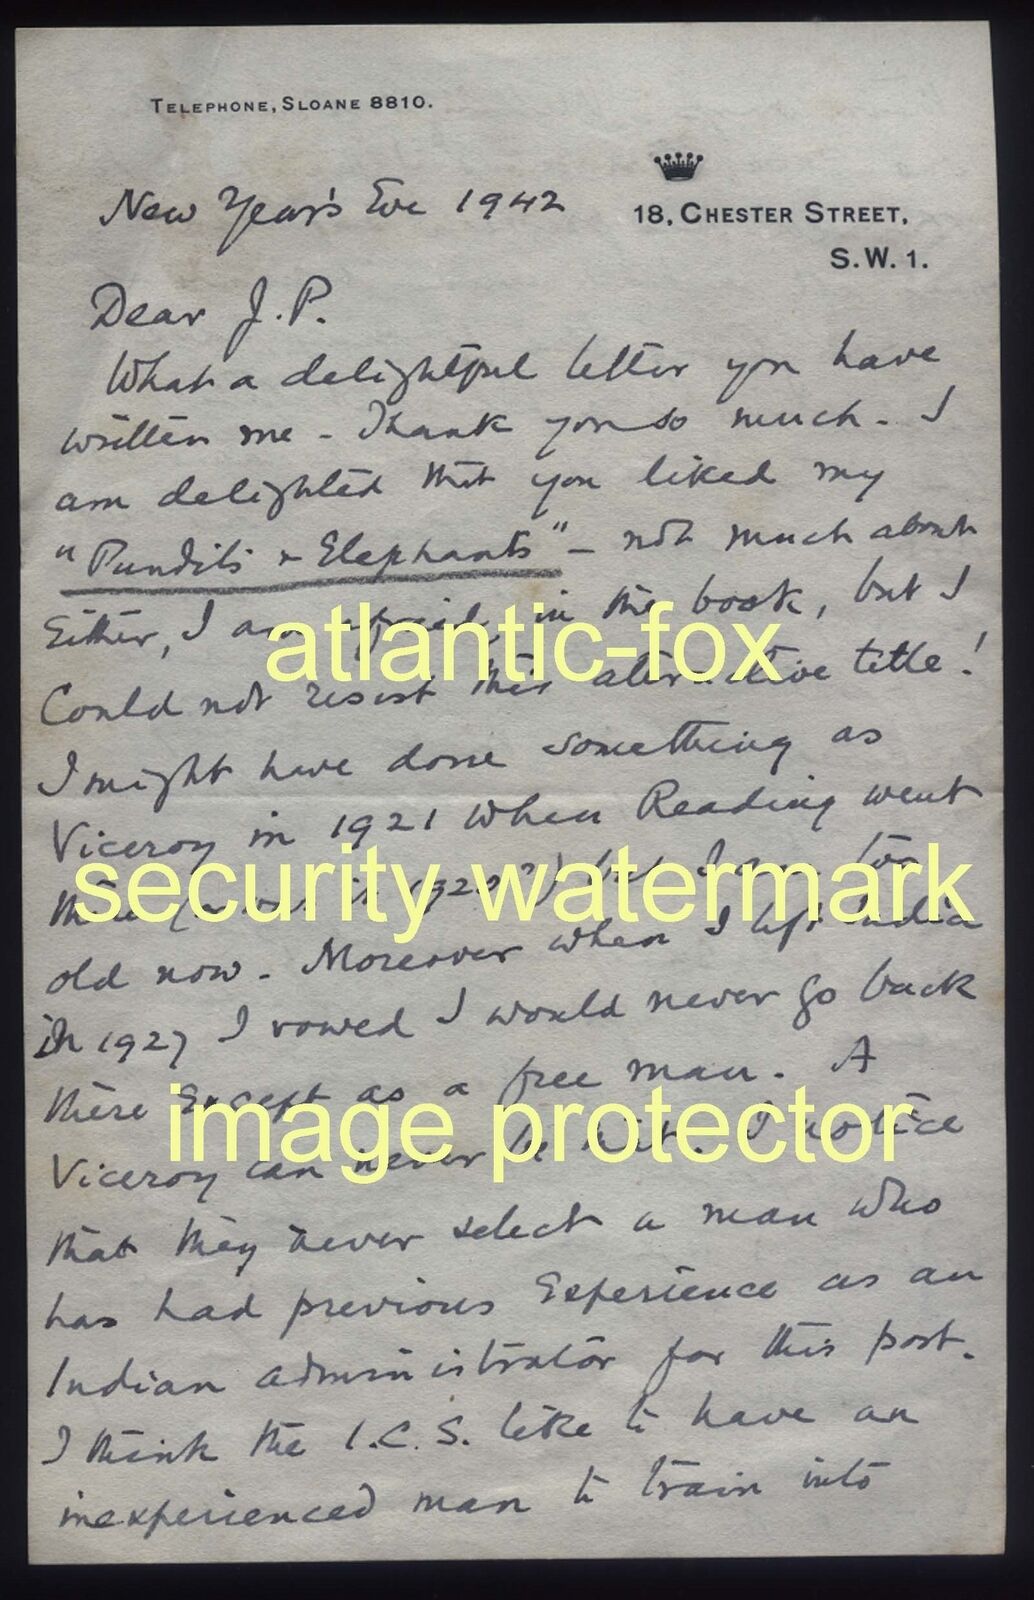 TELEPHONE, SLOANE 8810.
New Year's Eve 1942
18, CHESTER STREET,
S.W.1.
Dear J.P.
What a delightful letter you have
written me - Thank you so much. I
am delighted that you liked my
"Pundits & Elephants" - not much about
Either, I am afraid, in the book, but I
atlantic-fox
Could not resist this attractive title!
I might have done something as
Viceroy in 1921 when Reading went
there (or was it 1920?) but I am too
security watermark
old now. Moreover when I left India
in 1927 I vowed I would never go back
there Except as a free man. A
image protector
Viceroy can never be that. I notice
that they never select a man who
has had previous Experience as an
Indian administrator for this post.
I think the I.C.S. like to have an
inexperienced man to train into